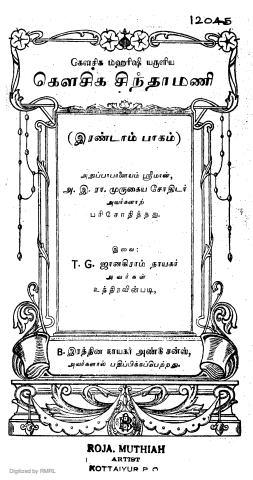 12045
கௌசிக மஹரிஷி யருளிய
கௌசிக சிந்தாமணி
(இரண்டாம் பாகம்)
ஸ்ரீமான்,
அ. இ. ரா. முருகைய சோதிடர்
அவர்களாற்
பரிசோதித்தது.
இவை:
T. G. ஜானகிராம் நாயகர்
அவர்கள்
உத்திரவின்படி,
B. இரத்தின நாயகர் அண்டு சன்ஸ்,
அவர்களால் பதிப்பிக்கப்பெற்றது.
ROJA, MUTHIAH
ARTIST
KOTTAIYUR P. O.
Digitized by RMRL